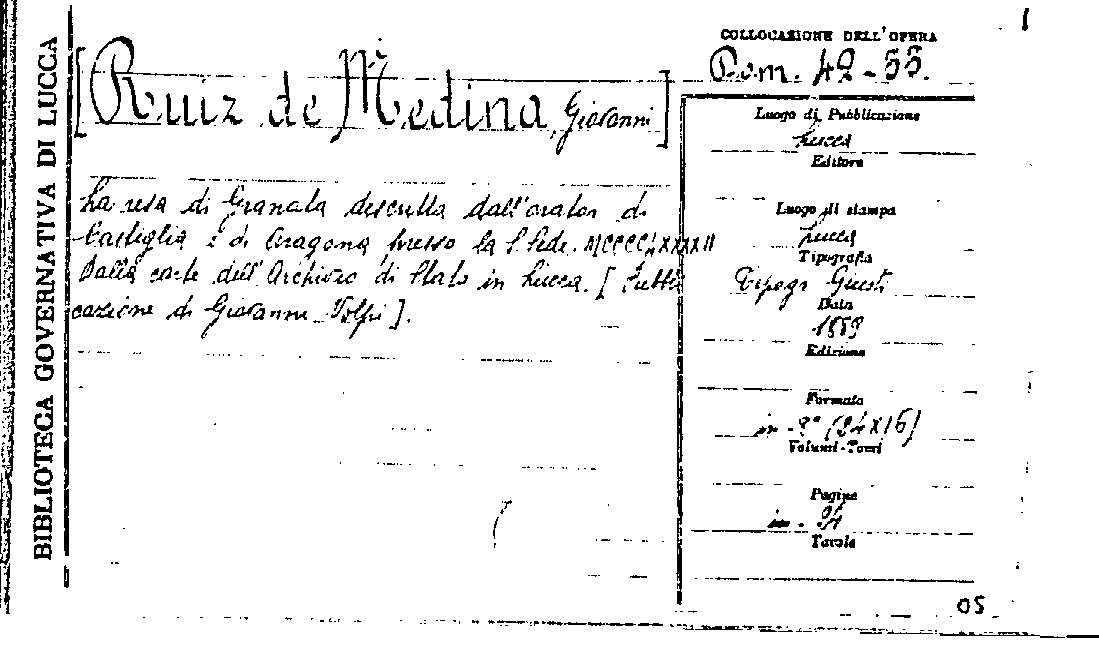 BIBLIOTECA GOVERNATIVA DI LUCCA
1
[Ruiz de Medina, Giovanni]
La resa di Granata descritta dall'orator di
Castiglia e di Aragona presso la S. Sede. MCCCCLXXXXII
Dalle carte dell'Archivio di Stato in Lucca. [Pubbli
cazione di Giovanni Volpi].
COLLOCAZIONE DELL'OPERA
Pom. 42-55.
Luogo di Pubblicazione
Lucca
Editore
Luogo di stampa
Lucca
Tipografia
Tipogr Giusti
Data
1889
Edizione
Formato
in-8° (24x16)
Volumi-Tomi
Pagine
in-
Tavole
OS